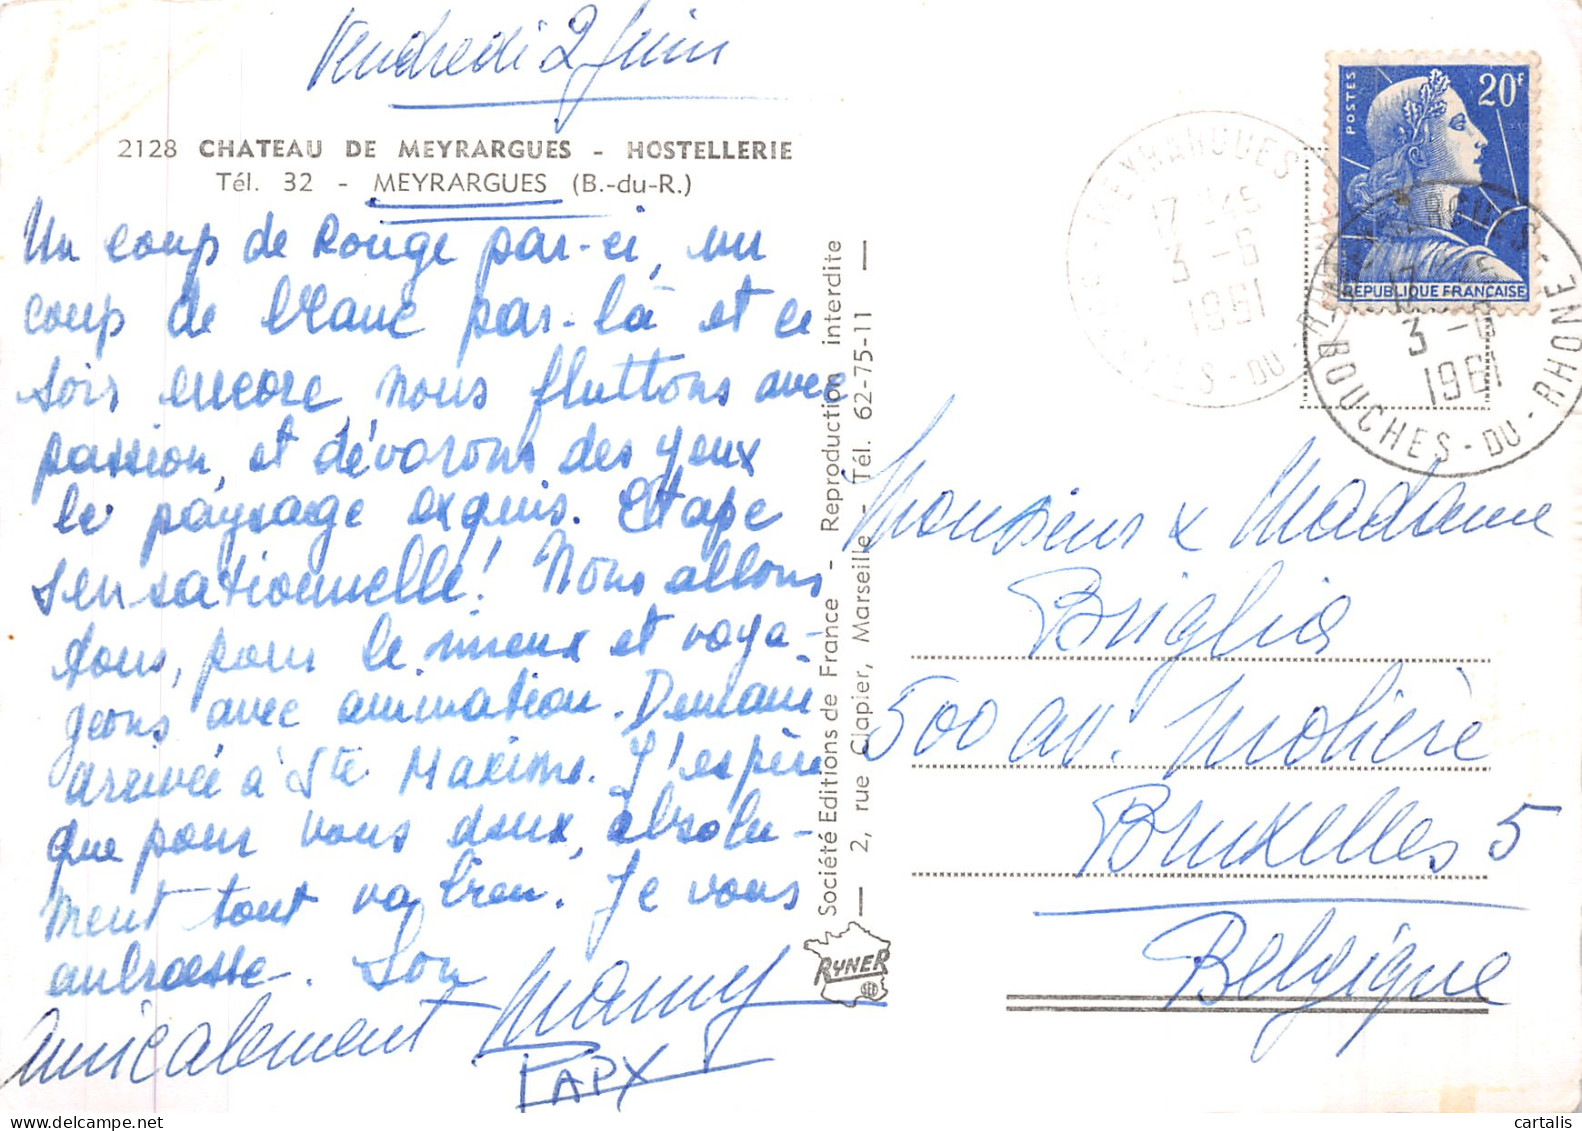 Vendredi 2 Juin
2128 CHATEAU DE MEYRARGUES - HOSTELLERIE
Tél. 32 - MEYRARGUES (B.-du-R.)
Un coup de Rouge par-ci, un
coup de blanc par-là et ce
soir encore nous fluttons avec
passion, et dévorons des yeux
le paysage exquis. Etape
sensationnelle! Nous allons
tous, pour le mieux et voya-
geons avec animation. Demain
arrivée à Ste Maxime. J'espère
que pour vous deux, absolu-
ment tout va bien. Je vous
embrasse. Son
Amicalement
Société Editions de France - Reproduction interdite
2, rue Clapier, Marseille - Tél. 62-75-11
RYNER
SEF
POSTES
20F
REPUBLIQUE FRANÇAISE
MEYRARGUES
17 -45
3 -6
1961
BOUCHES-DU-RHONE
3 -6
1961
BOUCHES-DU-RHONE
Monsieur & Madame
Briglia
500 av. Molière
Bruxelles 5
Belgique
cartalis